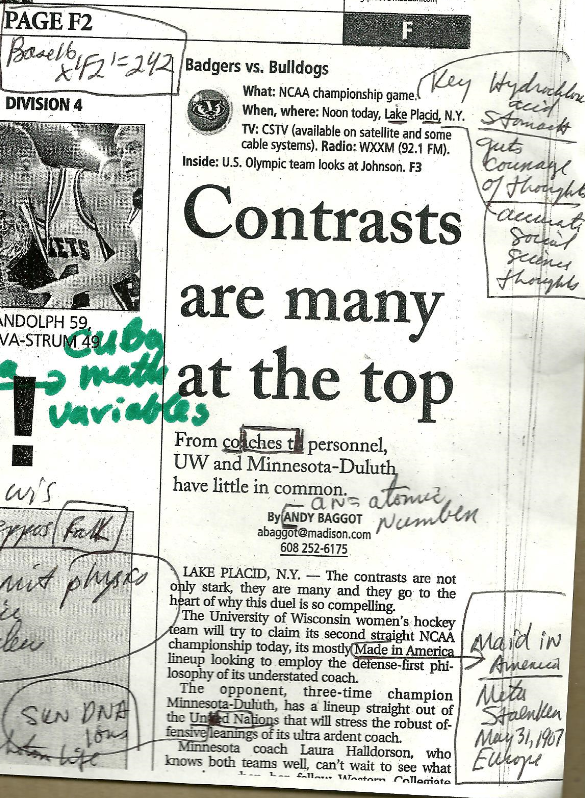 PAGE F2
F
Base 16
X'F2' = 242
DIVISION 4
ETS
ANDOLPH 59,
VA-STRUM 49
Cuba
math
variables
!
Badgers vs. Bulldogs
What: NCAA championship game.
When, where: Noon today, Lake Placid, N.Y.
TV: CSTV (available on satellite and some
cable systems). Radio: WXXM (92.1 FM).
Inside: U.S. Olympic team looks at Johnson. F3
Key
acid
Stomach
guts
Courage
of thought
accurate
social
science
thoughts
Contrasts
are many
at the top
From coaches to personnel,
UW and Minnesota-Duluth
have little in common.
an = atomic
Number
By ANDY BAGGOT
abaggot@madison.com
608 252-6175
LAKE PLACID, N.Y. — The contrasts are not
only stark, they are many and they go to the
heart of why this duel is so compelling.
The University of Wisconsin women's hockey
team will try to claim its second straight NCAA
championship today, its mostly Made in America
lineup looking to employ the defense-first phi-
losophy of its understated coach.
The opponent, three-time champion
Minnesota-Duluth, has a lineup straight out of
the United Nations that will stress the robust of-
fensive leanings of its ultra ardent coach.
Minnesota coach Laura Halldorson, who
knows both teams well, can't wait to see what
Fall
physics
SKN DNA
ions
Life
Maid in
America
Meta
May 31, 1907
Europe